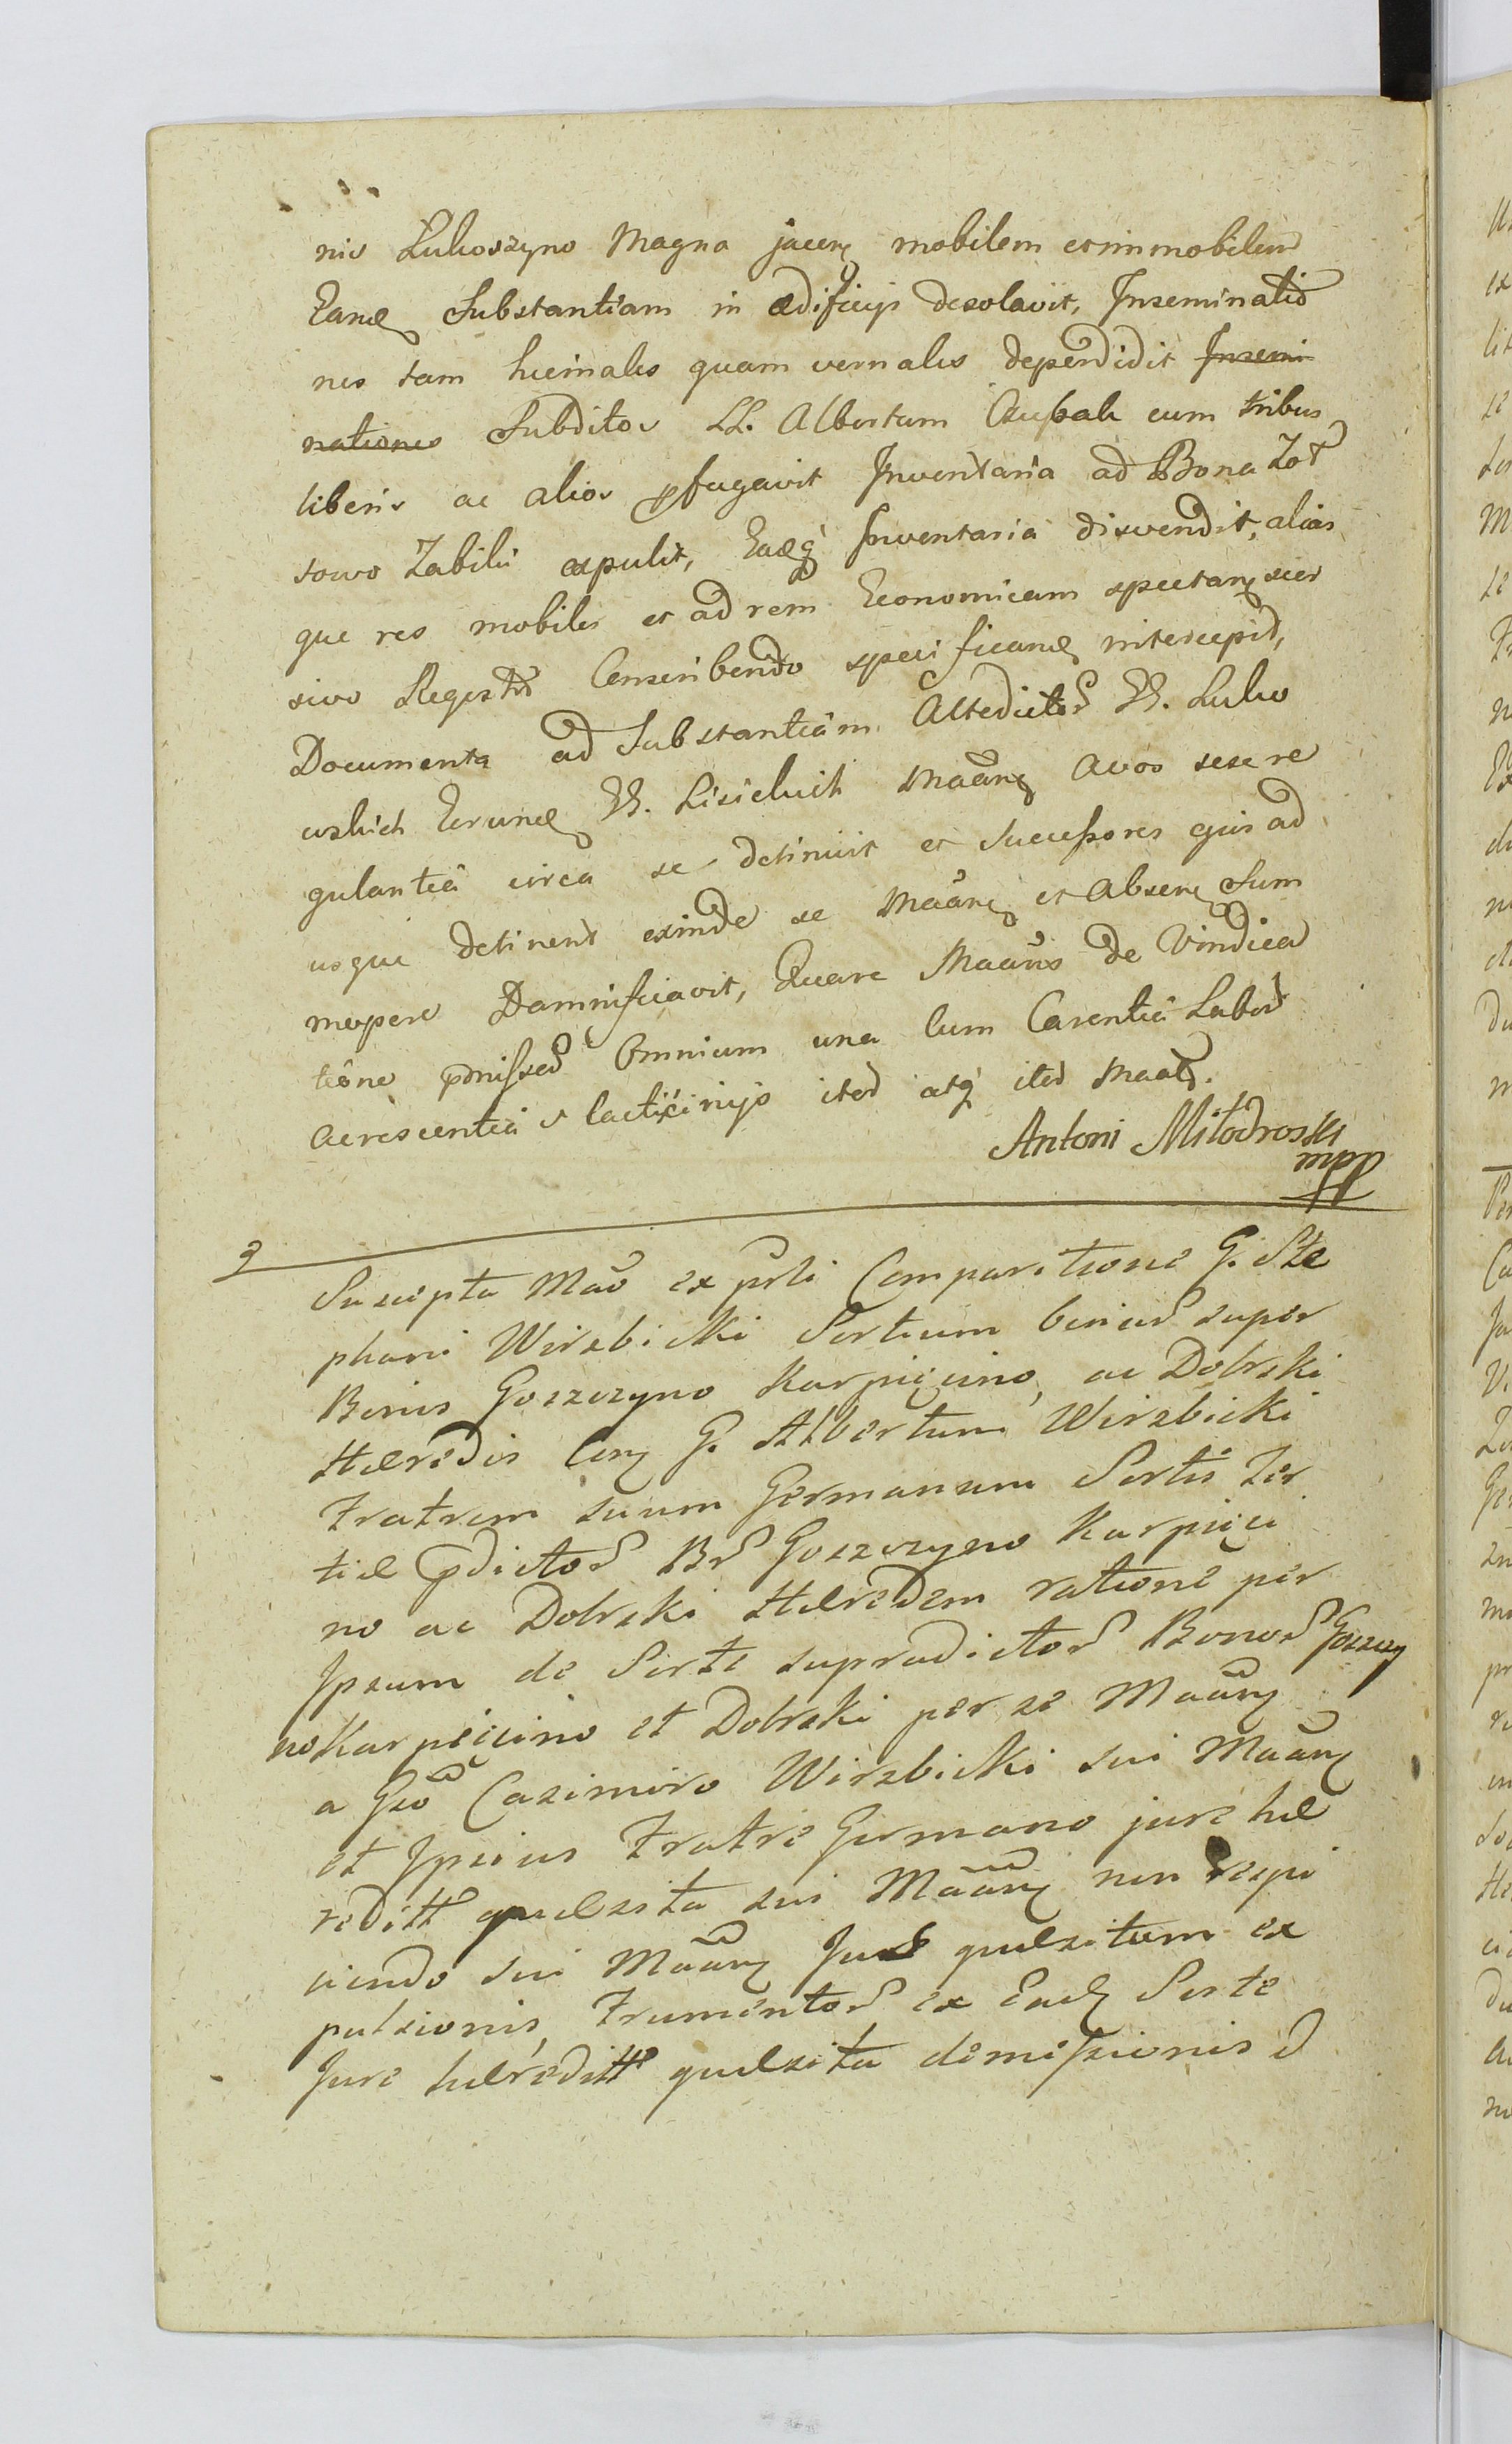 nis Lukoszyno Magna jacen mobilem et immobilem
Eand Substantiam in ædificijs desolavit, Inseminatio
nes tam hiemales quam vernales deperdidit Insemi
nationes Subditos LL. Albertum Czupak cum tribus
liberis ac alios pfugavit Inventaria ad Bona Zot
sowo Zabiku expulit, Eaq Inventaria disvendit, alias
que res mobiles et ad rem Economicam spectan
sivo Regestro Conscribendo specificand intercepit,
Documenta ad Substantiam Antedictor GG. Luko
wskich Eerund GG. Lisickich Maan Avos sese re
gulantia circa se detinuit et Successores ejus ad
usque detinent exinde se Maan et Absen Sum
mopere Damnificavit, Quare Maans de Vindica
tione pmissor Omnium una Cum Carentia Labor
acrescentia lacticinijs iter atq iter Maat.
Antoni Miłodroski
mpp
Suscipta Mao ex prti Comparitione G. Ste
phani Wirzbicki Sortium binar super
Bonis Goszczyno Karpięcino, ac Dobrski
Hæredis Con G. Albertum Wirzbicki
Fratrem suum Germanum Sortis Ter
tiæ pdictor Br Goszczyno Karpięci
no ac Dobrski Hæredem ratione per
Ipsum de Sorte supradictor Bonor Goszczy
no Karpięcino et Dobrski per se Maan
a Gso Casimiro Wirzbicki sui Maan
et Ipsius Fratre Germano jure hæ
reditt quæsita sui Maan non recipi
iendo sui Maan Jure quæsitam ex
pulsionis, Frumentor ex Ead Sorte
Jure hæreditt quæsita demissionis